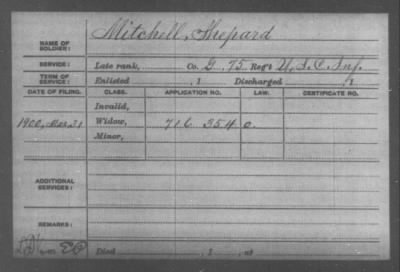 NAME OF SOLDIER: Mitchell, Shepard
SERVICE: Late rank, Co. G, 75 Reg't U.S.C. Inf.
TERM OF SERVICE: Enlisted , 1 Discharged , 1
DATE OF FILING. CLASS. APPLICATION NO. LAW. CERTIFICATE NO.
Invalid,
1900, Mar. 31 Widow, 716 354 O.
Minor,
ADDITIONAL SERVICES:
REMARKS:
Died , 1 , at